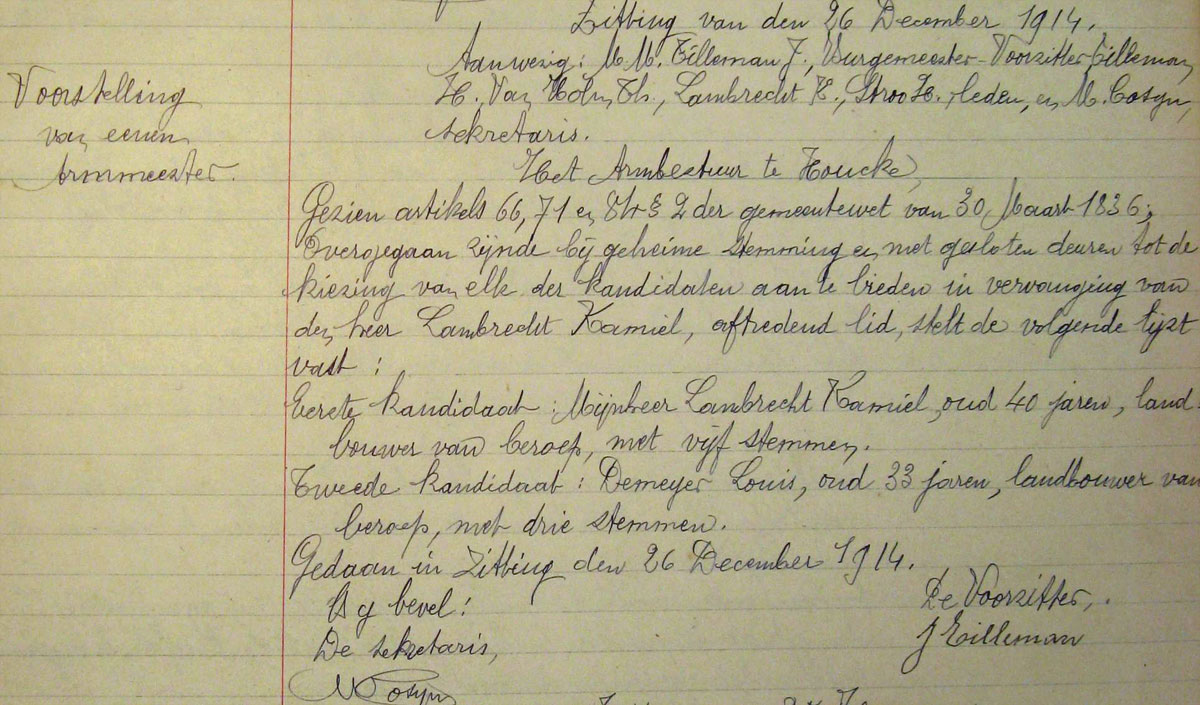 Zitting van den 26 December 1914.
Aanwezig: M.M. Tilleman J., Burgemeester-Voorzitter, Tilleman
H., Van Holm Th., Lambrecht K., Stroo H., leden, en M. Cosyn,
sekretaris.
Voorstelling
van eenen
Armmeester.
Het Armbestuur te Houcke,
Gezien artikels 66, 71 en 84 § 2 der gemeentewet van 30 Maart 1836;
Overgegaan zijnde bij geheime stemming en met gesloten deuren tot de
kiezing van elk der kandidaten aan te bieden in vervanging van
den heer Lambrecht Kamiel, aftredend lid, stelt de volgende lijst
vast :
Eerste kandidaat : Mijnheer Lambrecht Kamiel, oud 40 jaren, land-
bouwer van beroep, met vijf stemmen.
Tweede kandidaat : Demeyer Louis, oud 33 jaren, landbouwer van
beroep, met drie stemmen.
Gedaan in Zitting den 26 December 1914.
Bij bevel :
De sekretaris,
De Voorzitter,
J Tilleman
M Cosyn